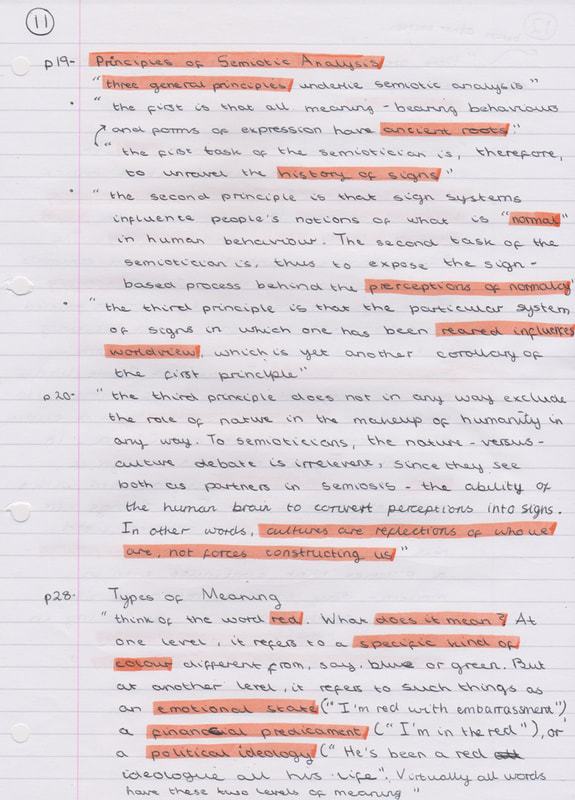 11
p19- Principles of Semiotic Analysis
"three general principles underlie semiotic analysis"
• "the first is that all meaning-bearing behaviours
and forms of expression have ancient roots"
"the first task of the semiotician is, therefore,
to unravel the history of signs"
• "the second principle is that sign systems
influence people's notions of what is "normal"
in human behaviour. The second task of the
semiotician is, thus to expose the sign-
based process behind the prerceptions of normalcy"
• "the third principle is that the particular system
of signs in which one has been reared influences
worldview, which is yet another corollary of
the first principle"
p20- "the third principle does not in any way exclude
the role of nature in the makeup of humanity in
any way. To semioticians, the nature-versus-
culture debate is irrelevent, since they see
both as partners in semiosis - the ability of
the human brain to convert perceptions into signs.
In other words, cultures are reflections of who we
are, not forces constructing us"
p28- Types of Meaning
"think of the word red. What does it mean? At
one level, it refers to a specific kind of
colour different from, say, blue or green. But
at another level, it refers to such things as
an emotional state ("I'm red with embarrassment")
a financial predicament ("I'm in the red"), or
a political ideology ("He's been a red
ideologue all his life". Virtually all words
have these two levels of meaning"